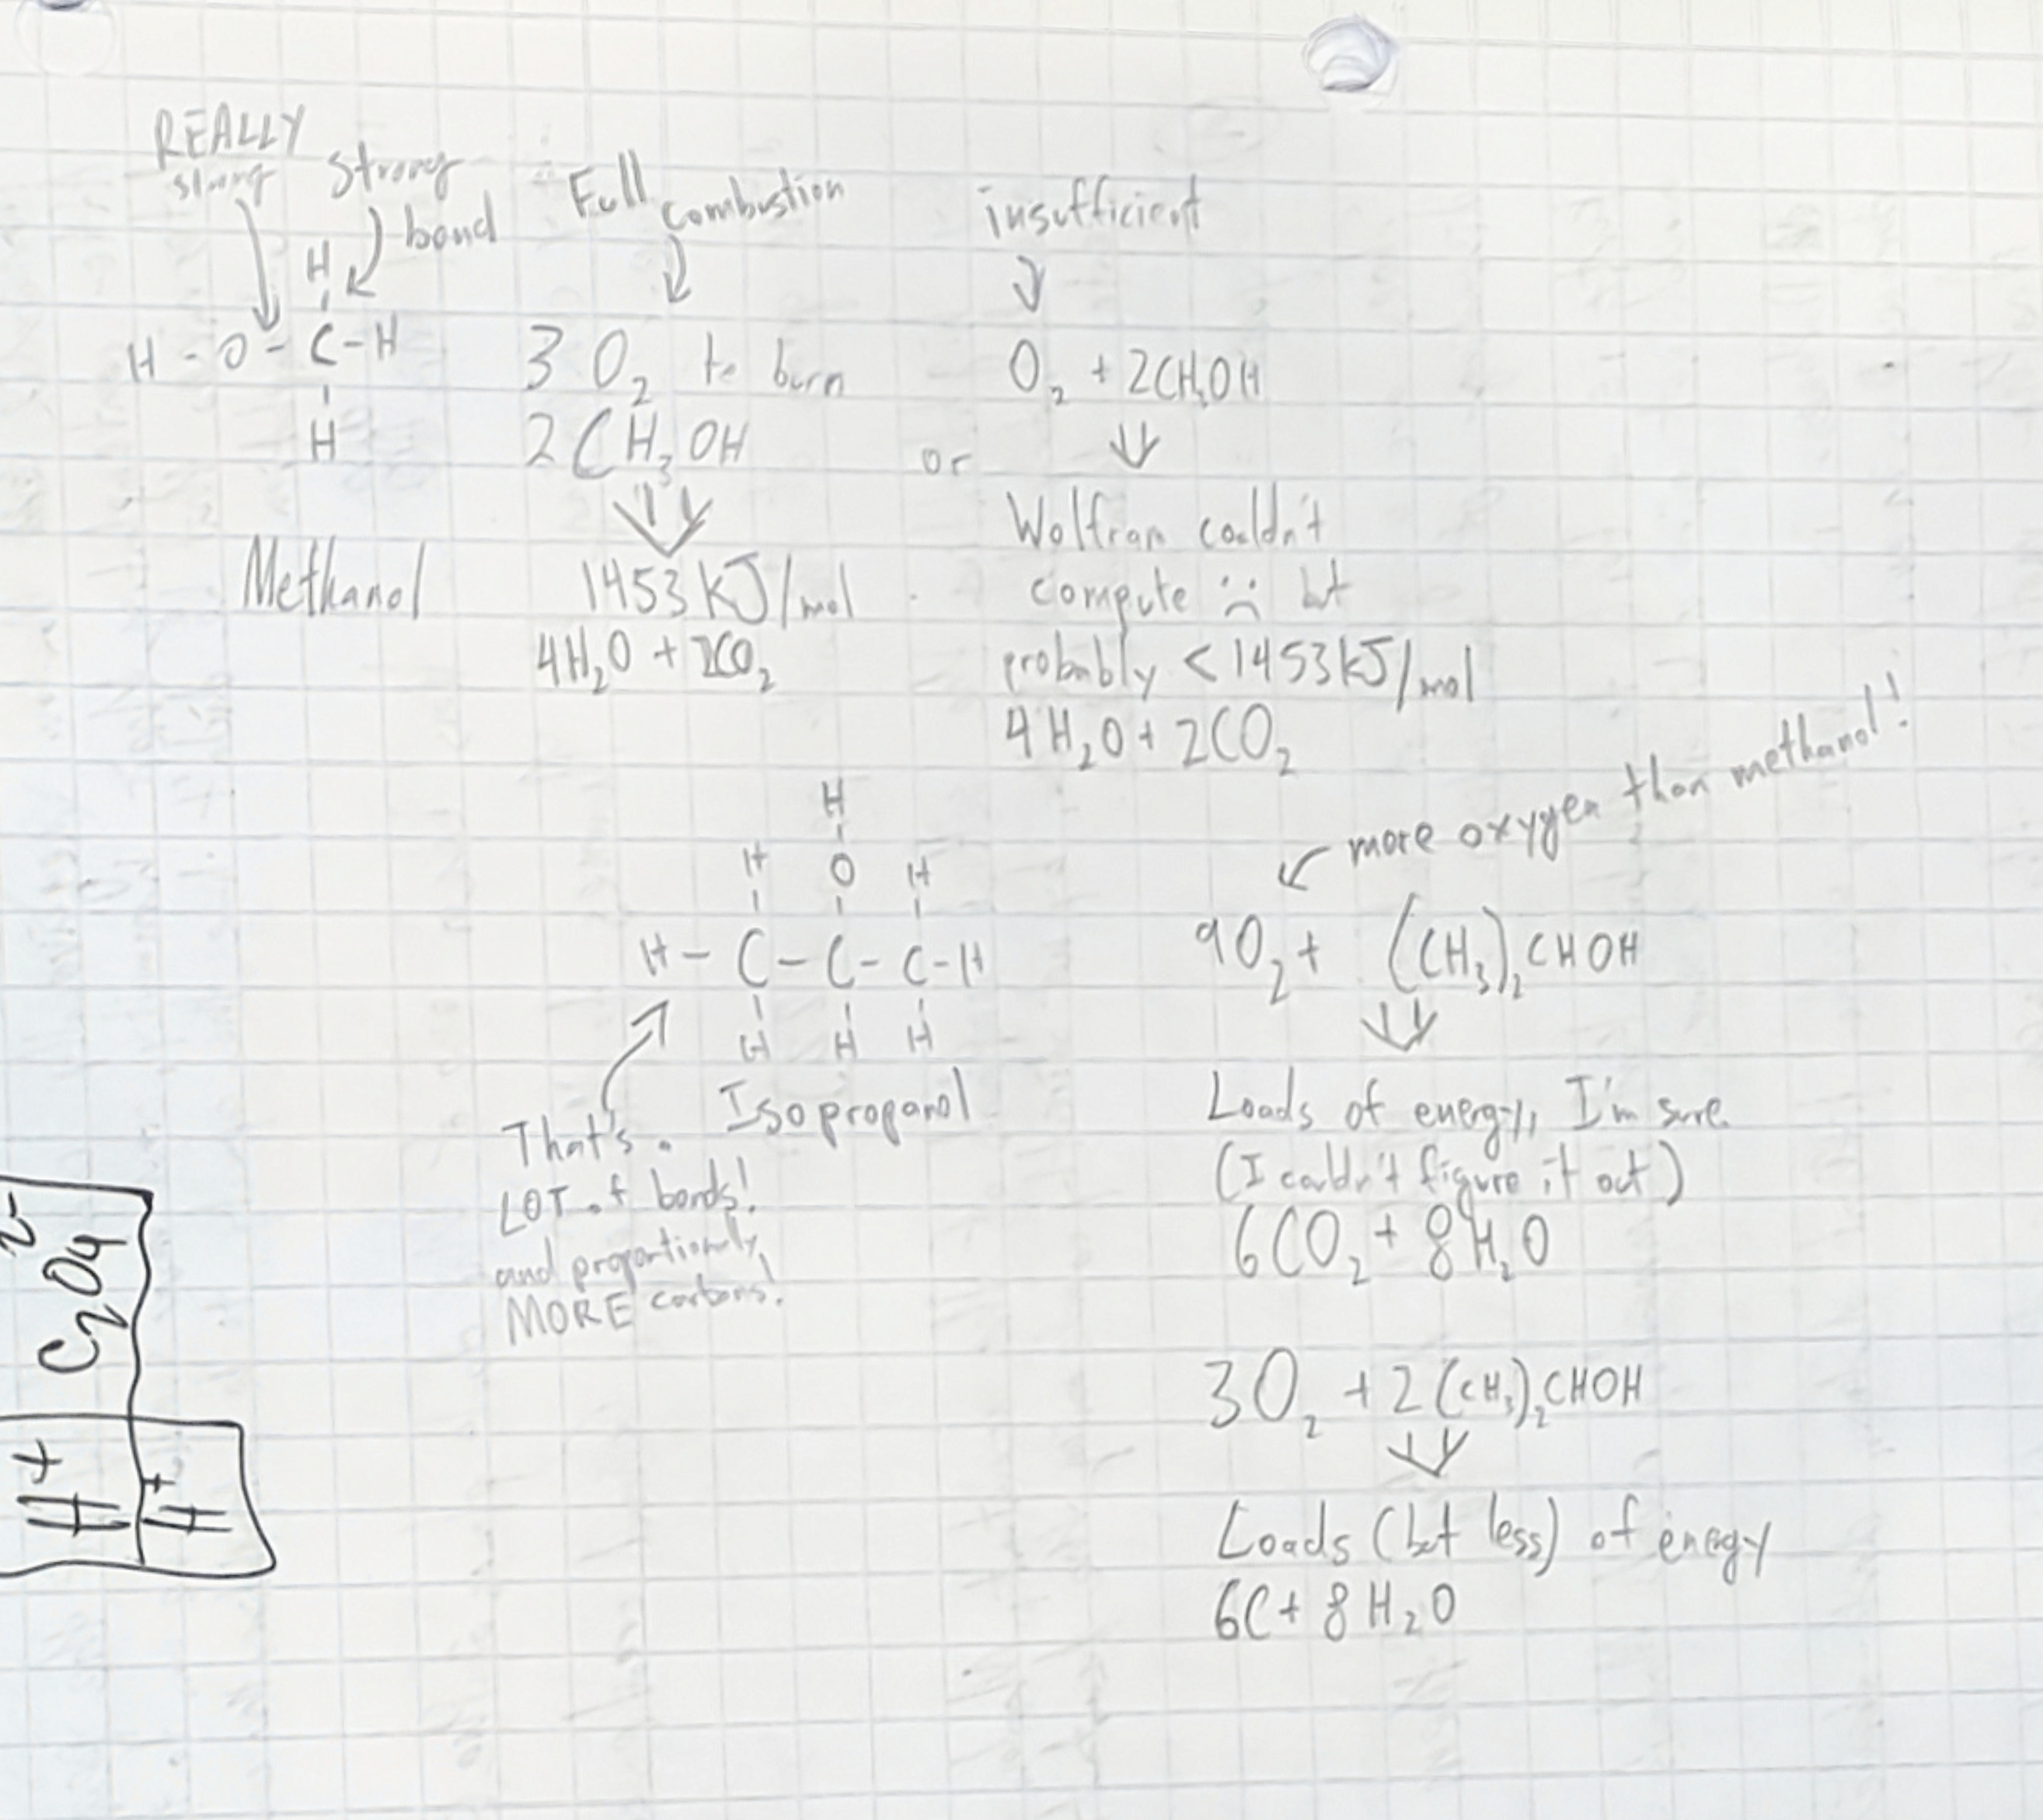 REALLY
strong
Strong
bond
H
H - O - C - H
H
Methanol
Full combustion
3 O₂ to burn
2 CH₃OH
1453 kJ/mol
4H₂O + 2CO₂
or
insufficient
O₂ + 2CH₃OH
Wolfram couldn't
compute :( but
probably < 1453 kJ/mol
4H₂O + 2CO₂
H
H O H
H - C - C - C - H
H H H
Isopropanol
That's a
LOT of bonds!
and proportionally
MORE carbons!
more oxygen than methanol!
9O₂ + (CH₃)₂CHOH
Loads of energy, I'm sure
(I couldn't figure it out)
6CO₂ + 8H₂O
3O₂ + 2(CH₃)₂CHOH
Loads (but less) of energy
6C + 8H₂O
H⁺ C₂O₄²⁻
H⁺